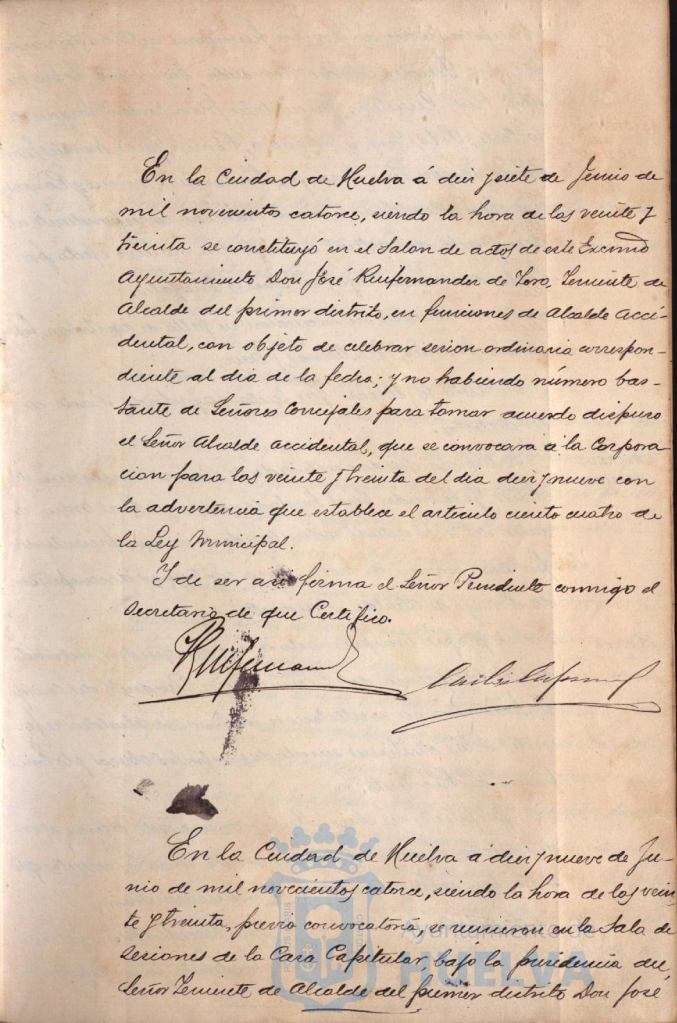 En la Ciudad de Huelva á diez y siete de Junio de
mil novecientos catorce, siendo la hora de las veinte y
treinta se constituyó en el Salon de actos de este Excmo
Ayuntamiento Don José Ruifernandez de Toro, Teniente de
Alcalde del primer distrito, en funciones de Alcalde acci-
dental, con objeto de celebrar sesion ordinaria correspon-
diente al dia de la fecha; y no habiendo número bas-
tante de Señores Concejales para tomar acuerdo dispuso
el Señor Alcalde accidental, que se convocara á la Corpora-
cion para las veinte y treinta del dia diez y nueve con
la advertencia que establece el articulo ciento cuatro de
la Ley Municipal.
Y de ser asi firma el Señor Presidente conmigo el
Secretario de que Certifico.
Ruifernandez
En la Ciudad de Huelva á diez y nueve de Ju-
nio de mil novecientos catorce, siendo la hora de las vein-
te y treinta, previa convocatoria, se reunieron en la Sala de
Sesiones de la Casa Capitular, bajo la presidencia del
Señor Teniente de Alcalde del primer distrito Don José
Ayuntamiento de
HUELVA